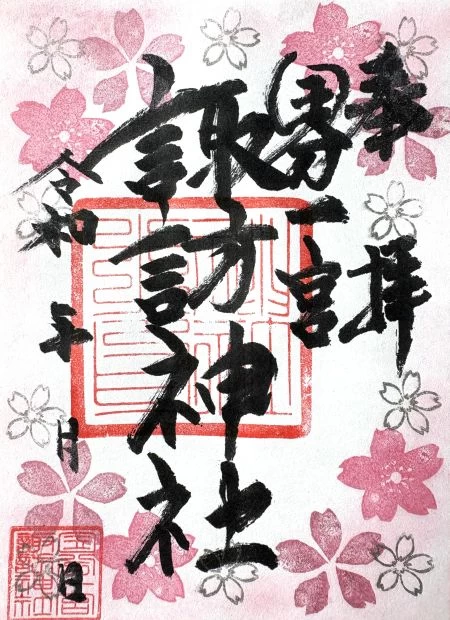 奉拝
一宮
諏訪神社
令和 年 月 日